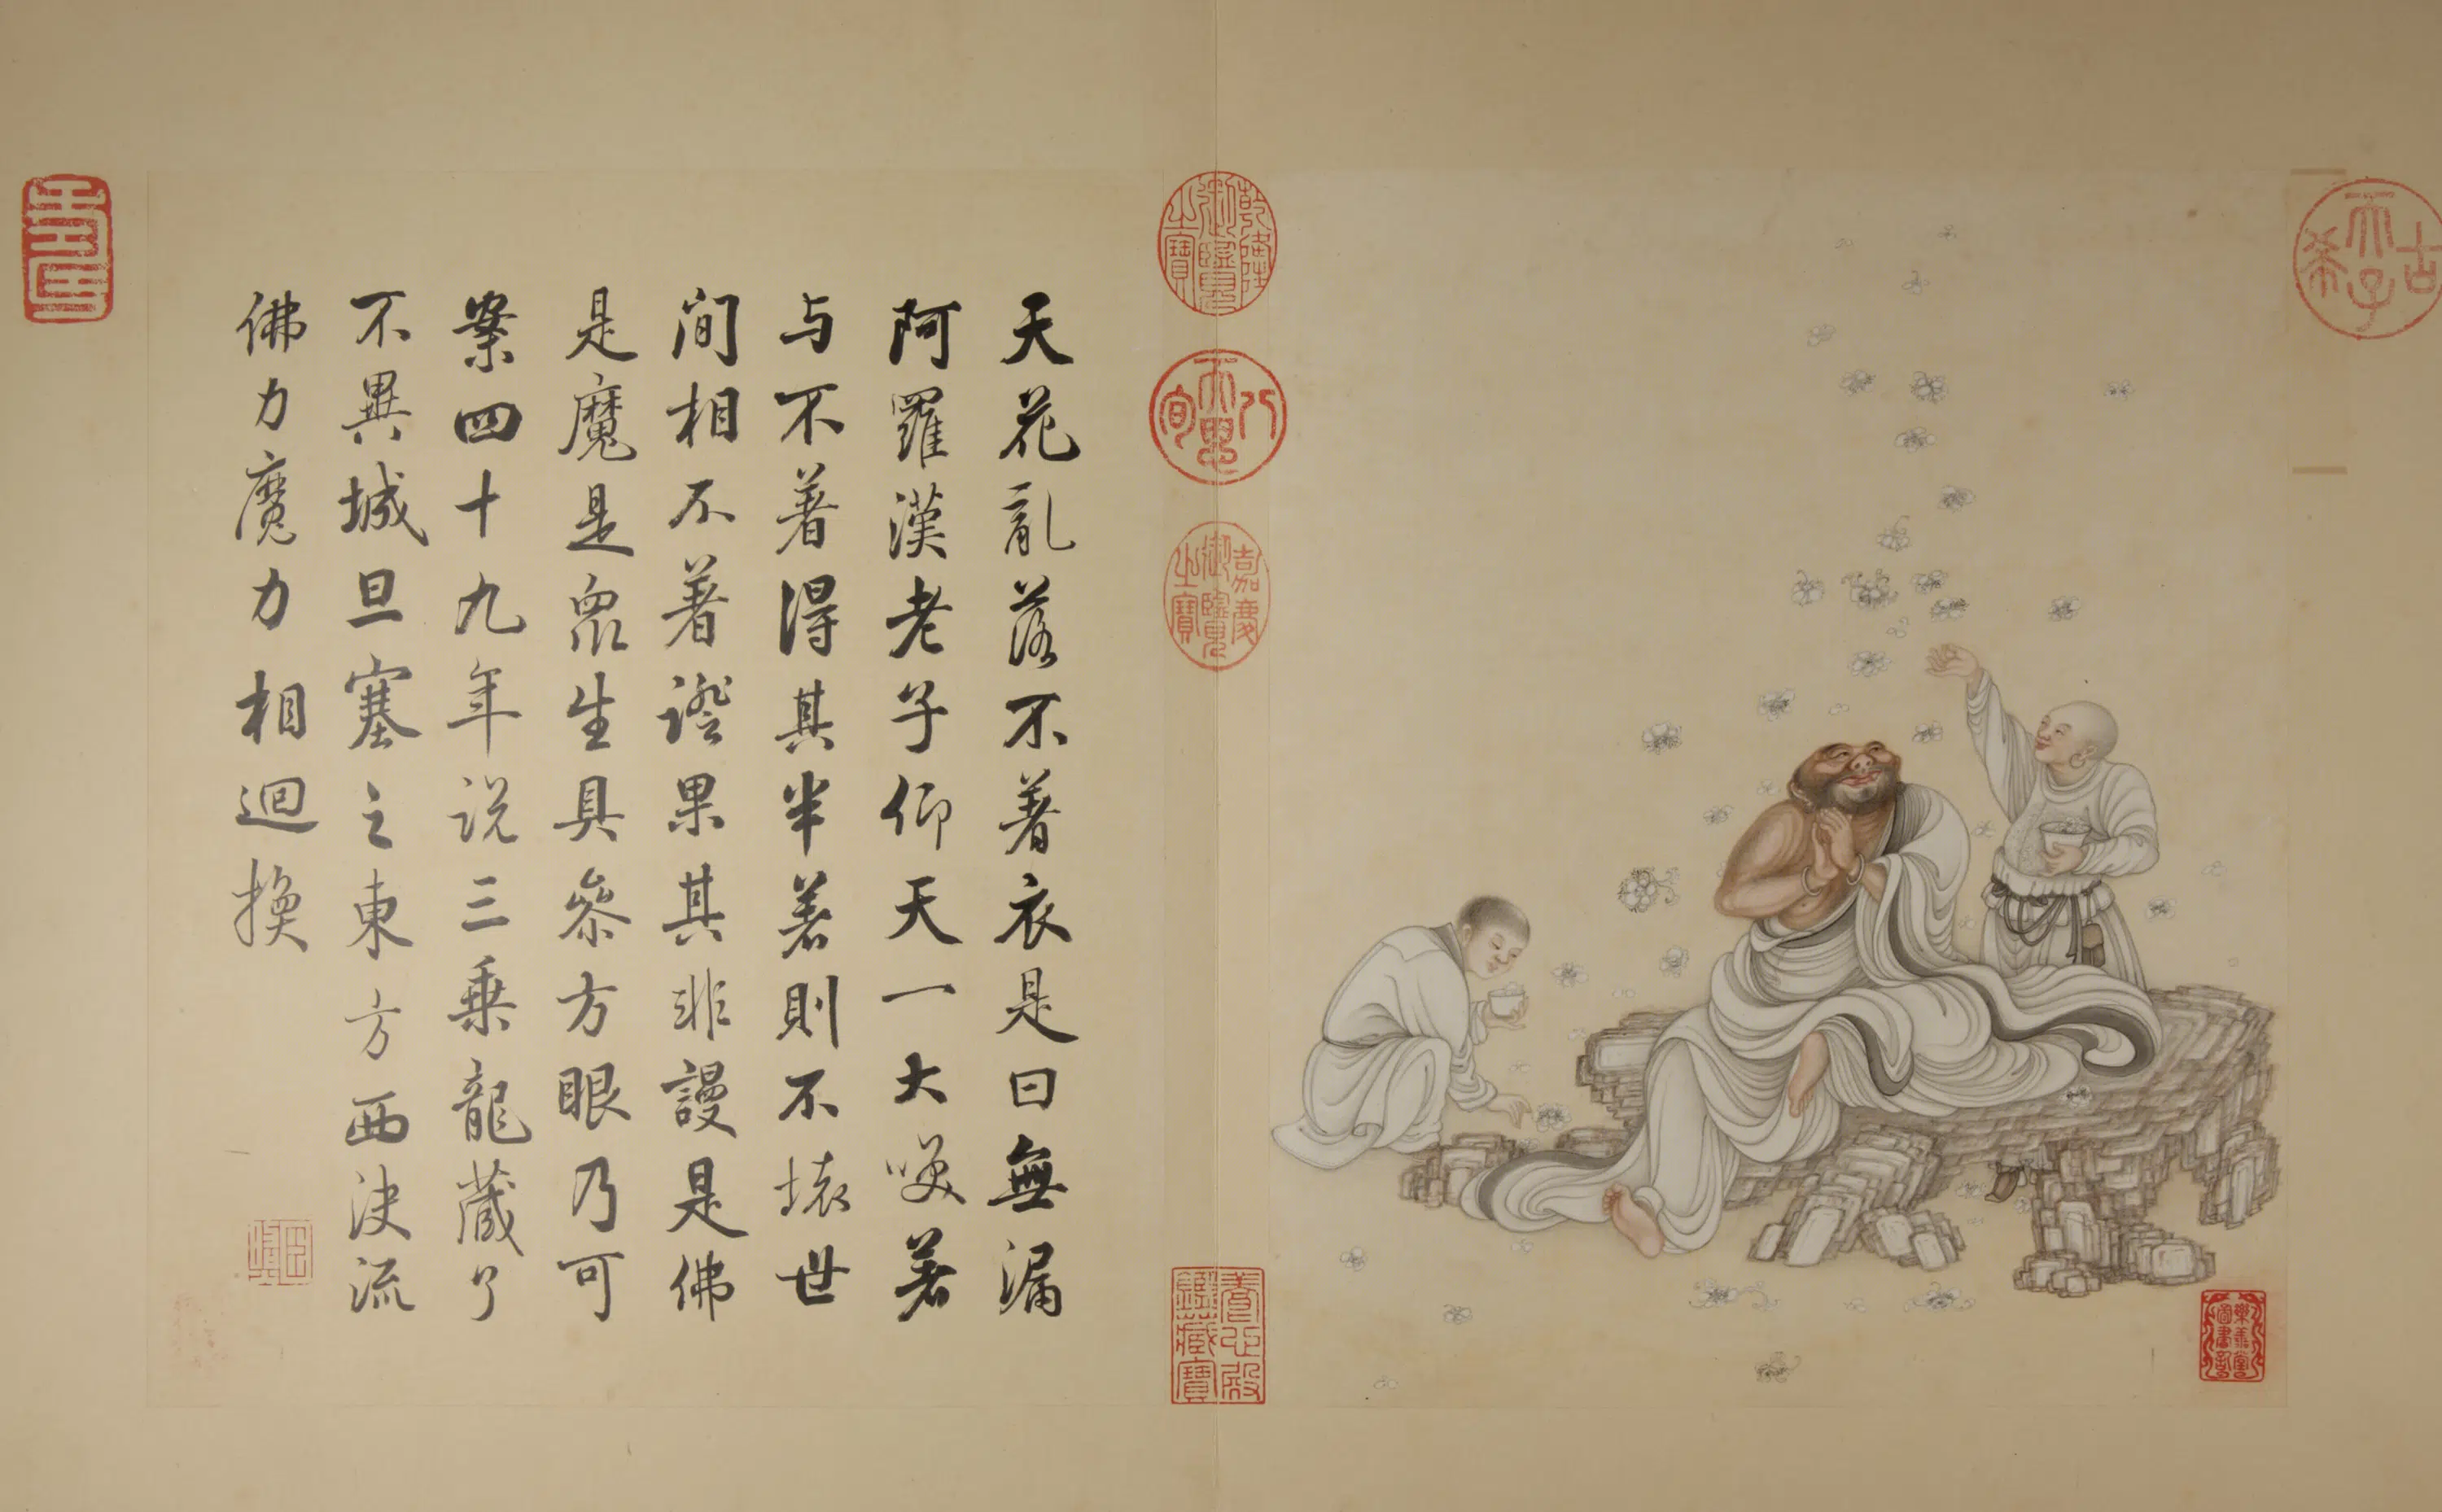 天花亂落不著衣是曰無漏
阿羅漢老子仰天一大笑著
与不著得其半著則不壞世
间相不著證果其非謾是佛
是魔是眾生具參方眼乃可
案四十九年说三乗龍藏了
不異城旦塞之東方西決流
佛力魔力相迴換
古希天子
乾隆御覽之寶
八徵耄念
嘉慶御覽之寶
養心殿鑑藏寶
樂善堂圖書記